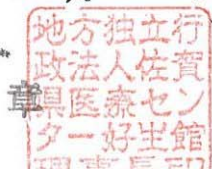 地方独立行
政法人佐賀
章
県医療セン
ター好生館
理事長印